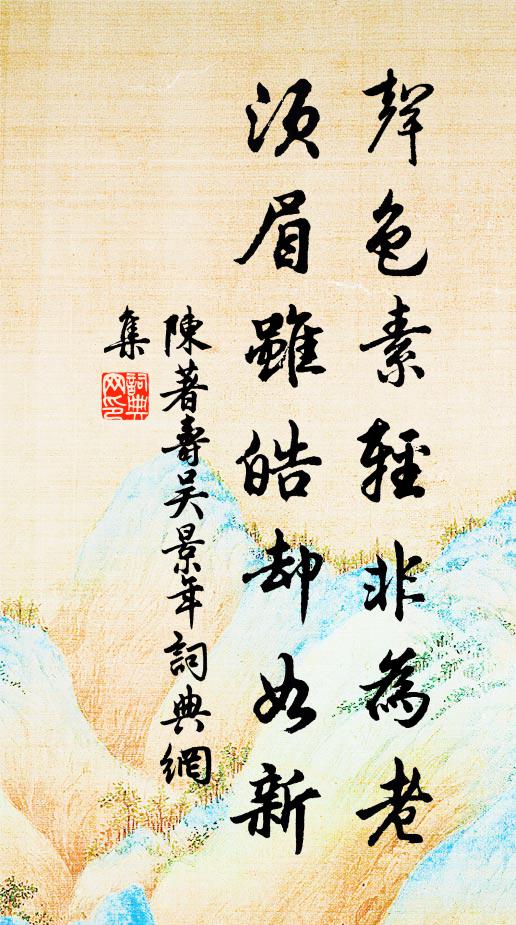 聲色素輕非為老
須眉雖皓却如新
陳著壽吴景年詞典網
集
詞典
网印